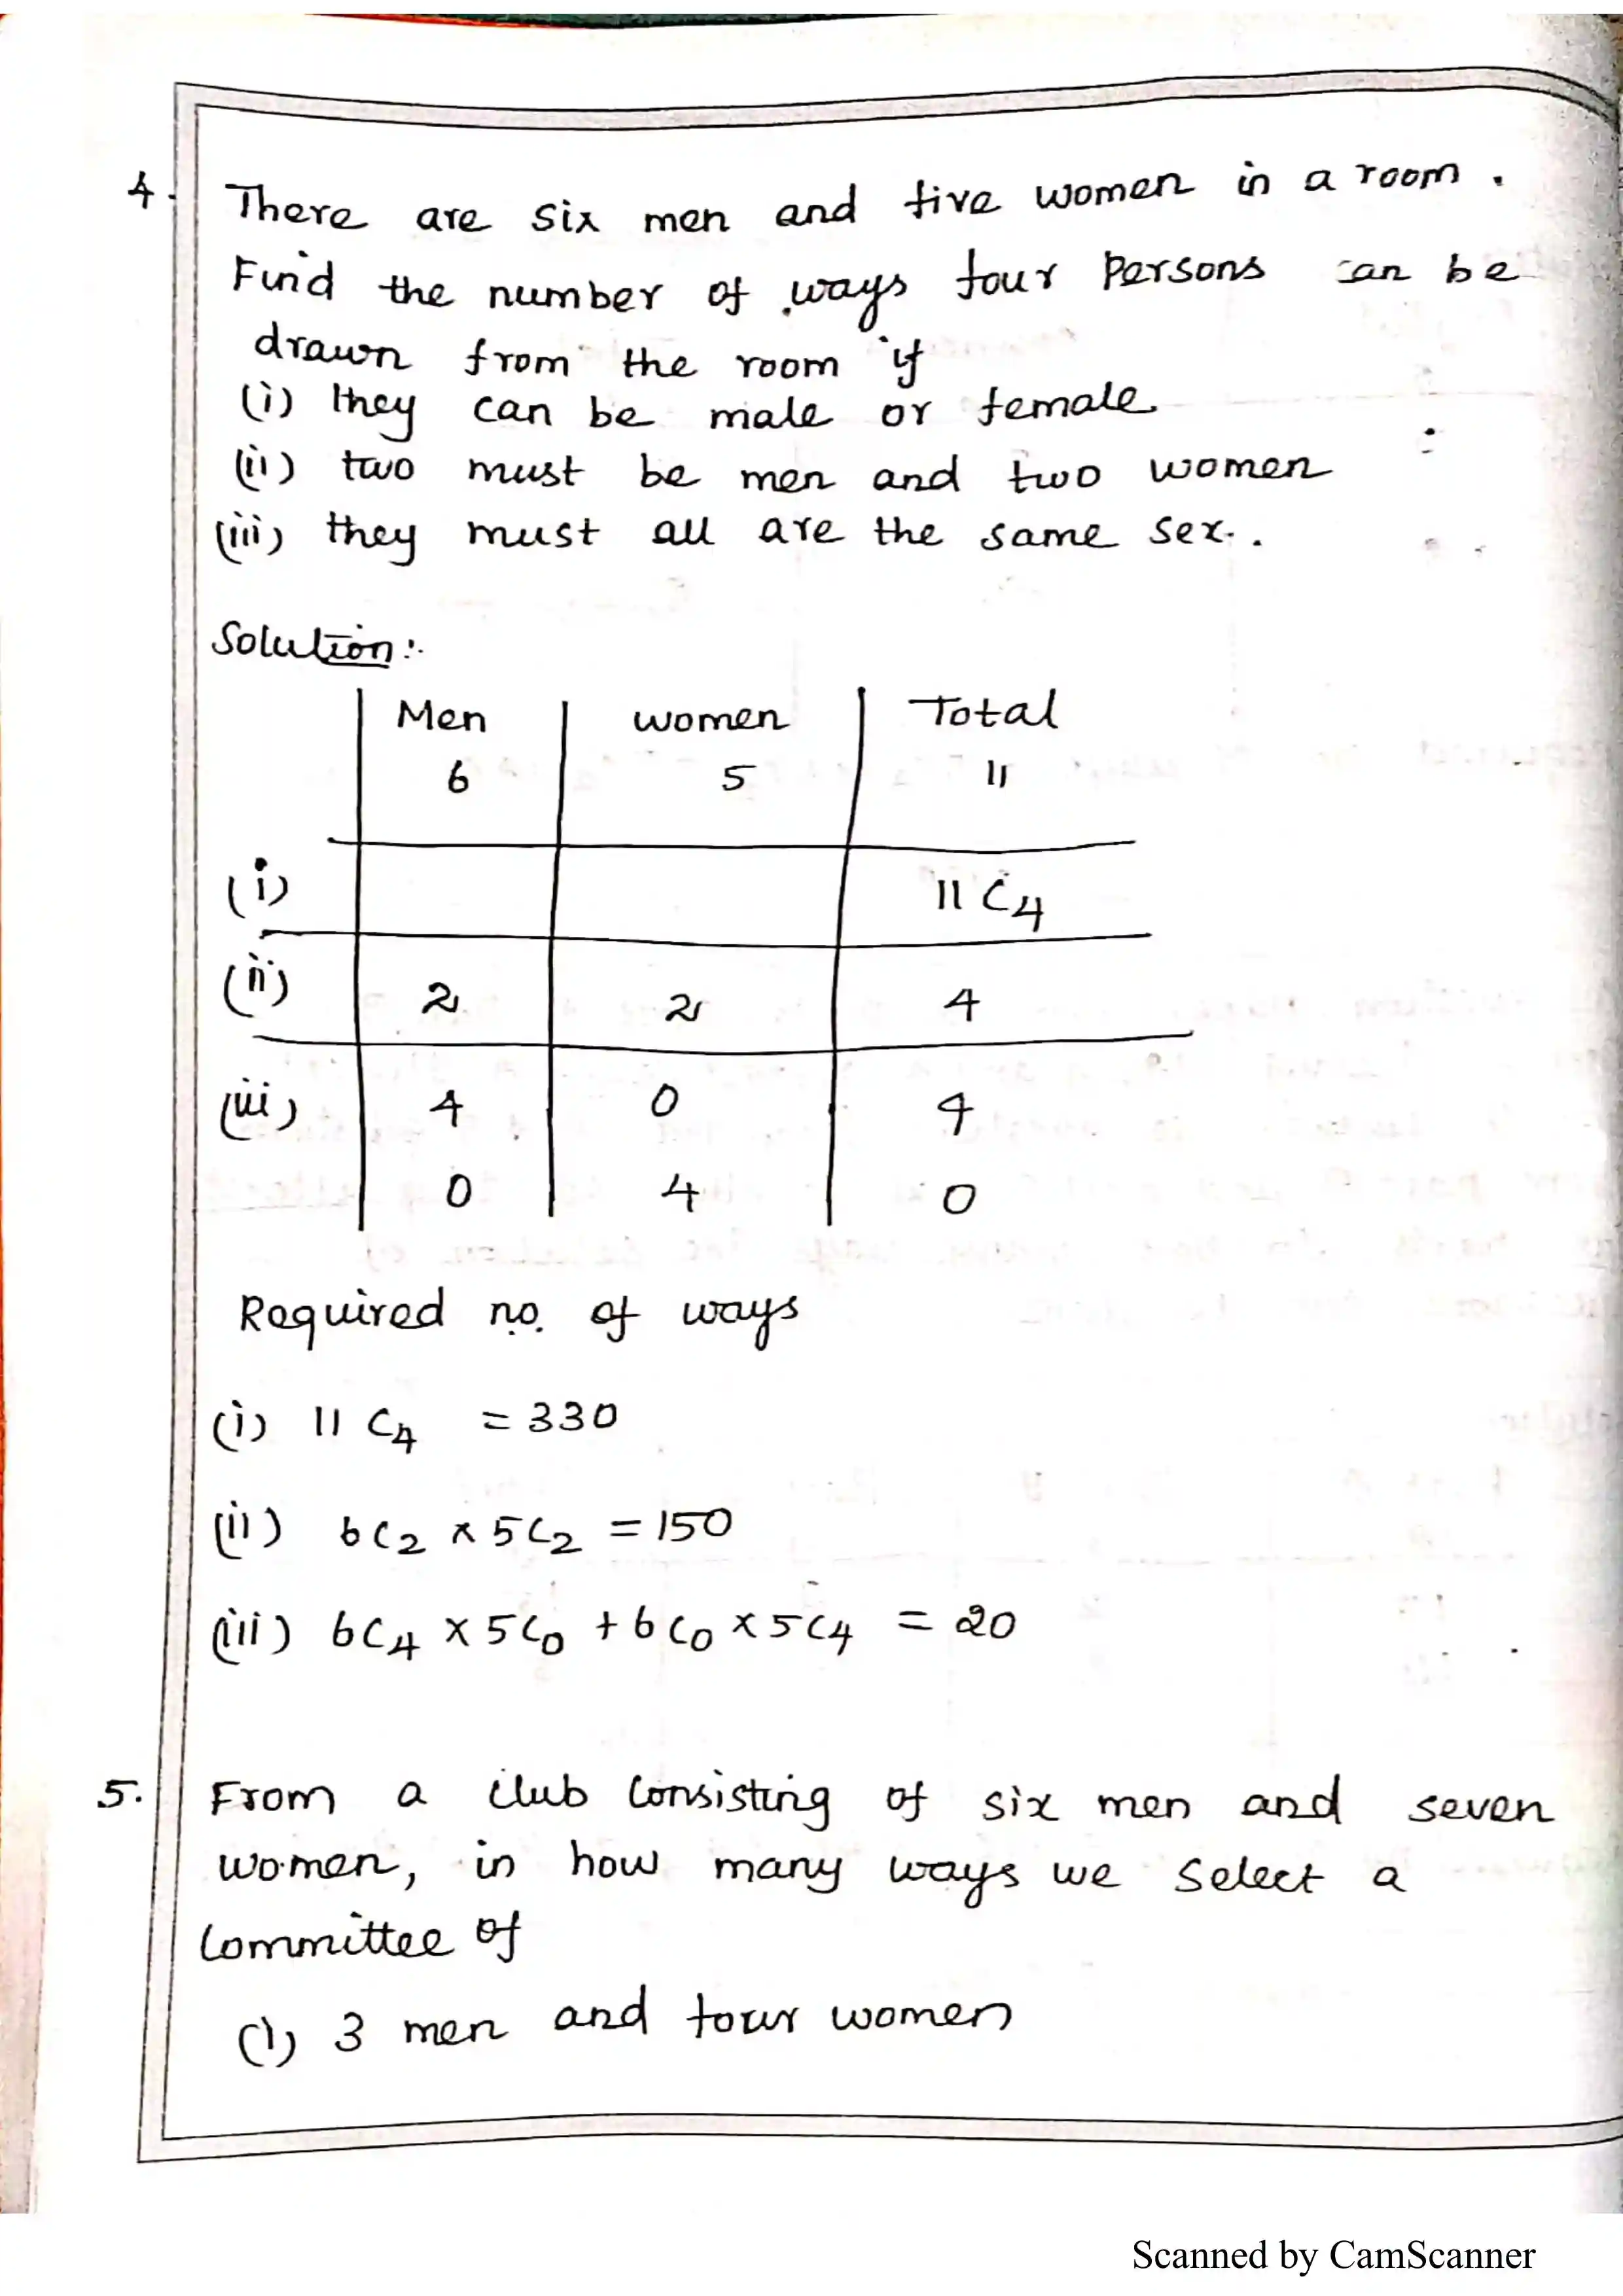 4. There are six men and five women in a room.
Find the number of ways four persons can be
drawn from the room if
(i) they can be male or female
(ii) two must be men and two women
(iii) they must all are the same sex.
Solution:-
Men women Total
6 5 11
(i) 11 C4
(ii) 2 2 4
(iii) 4 0 4
0 4 0
Required no. of ways
(i) 11 C4 = 330
(ii) 6C2 x 5C2 = 150
(iii) 6C4 x 5C0 + 6C0 x 5C4 = 20
5. From a club consisting of six men and seven
women, in how many ways we select a
committee of
(i) 3 men and four women
Scanned by CamScanner